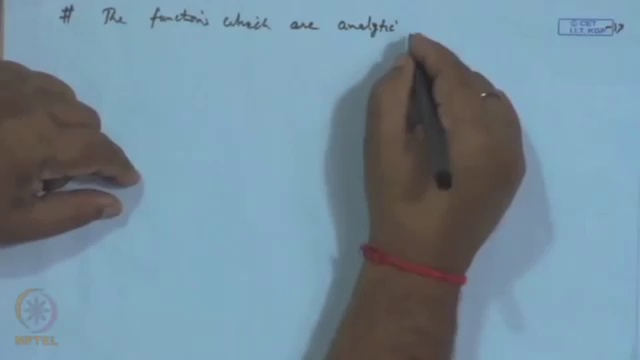 # The functions which are analytic
C-CET
I.I.T. KGP
NPTEL